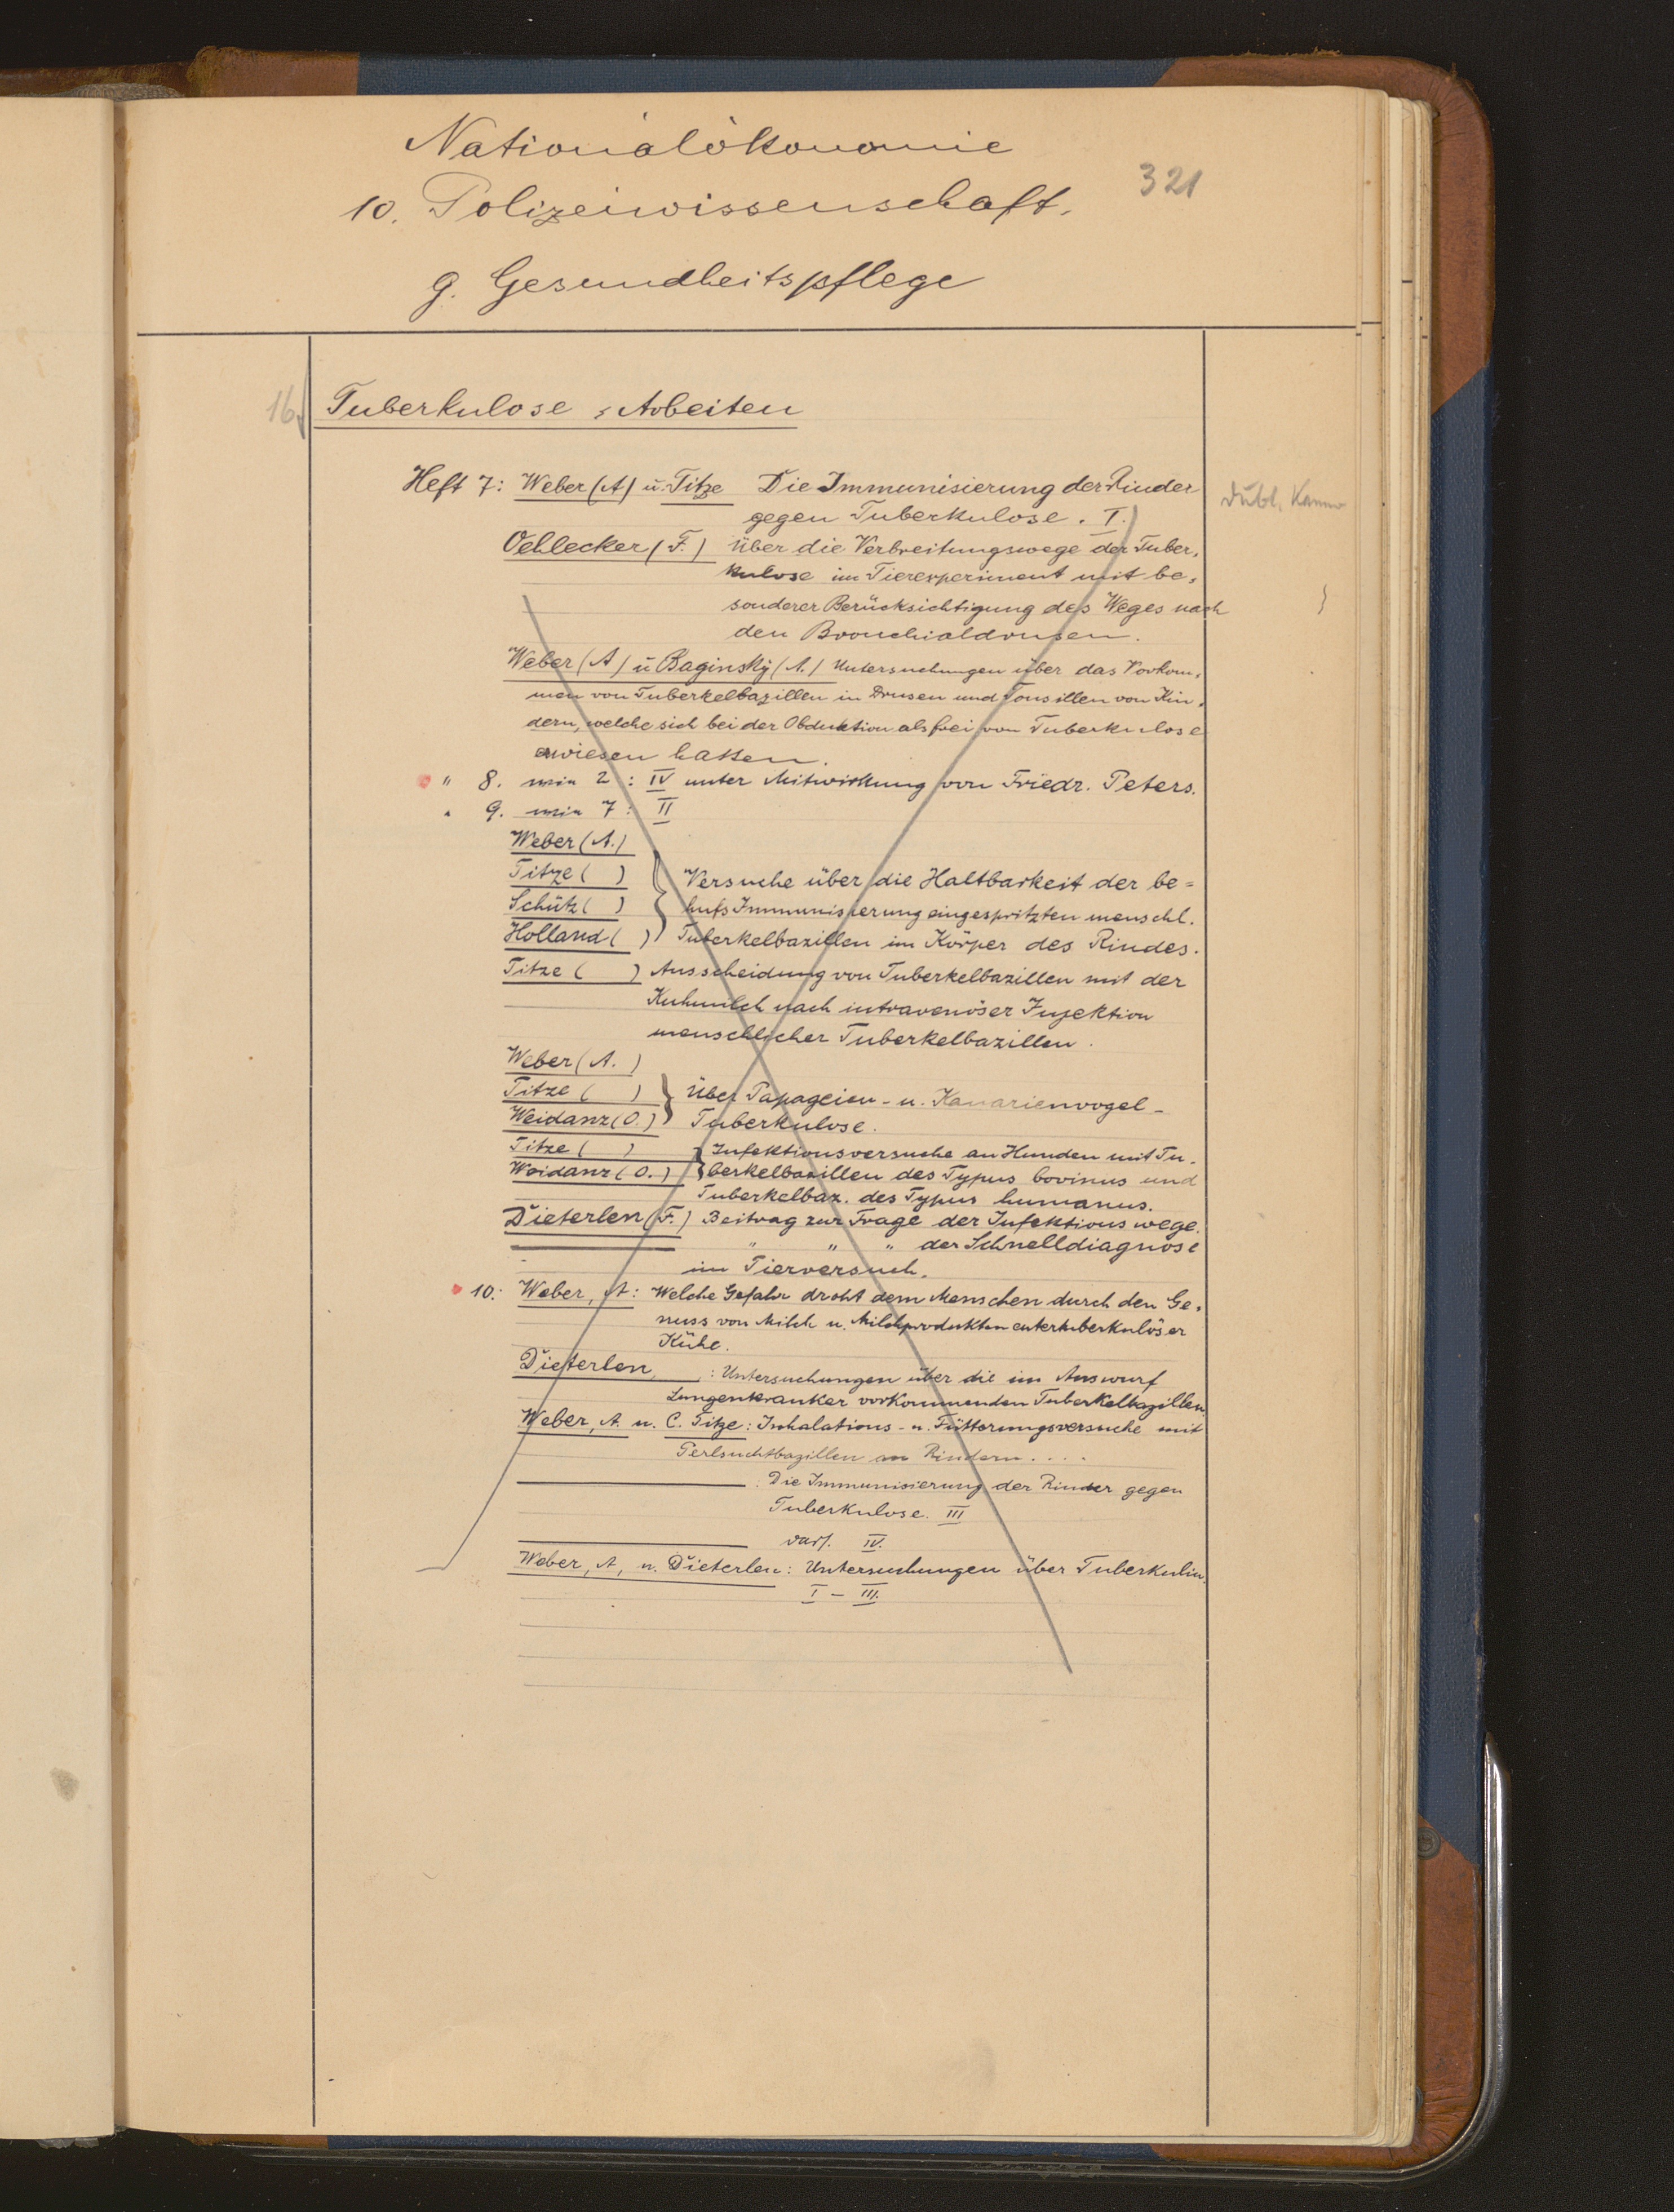 Nationalökonomie
321
10. Polizeiwissenschaft.
g. Gesundheitspflege
16.
Tuberkulose-Arbeiten
Heft 7: Weber (A) u. Titze Die Immunisierung der Rinder
dubl.
gegen Tuberkulose. I.
Oehlecker (F.) über die Verbreitungswege der Tuber-
kulose im Tierexperiment mit be-
sonderer Berücksichtigung des Weges nach
den Bronchialdrusen.
Weber (A) u Baginsky (A.) Untersuchungen über das Vorkom-
men von Tuberkelbazillen in Drusen und Tonsillen von Kin-
dern, welche sich bei der Obduktion als frei von Tuberkulose
erwiesen hatten.
" 8. wie 2: IV unter Mitwirkung von Friedr. Peters.
" 9. wie 7: II
Weber (A.)
Titze ( ) Versuche über die Haltbarkeit der be-
Schütz ( ) hufs Immunisierung eingespritzten menschl.
Holland ( ) Tuberkelbazillen im Körper des Rindes.
Titze ( ) Ausscheidung von Tuberkelbazillen mit der
Kuhmilch nach intravenöser Injektion
menschlicher Tuberkelbazillen.
Weber (A.)
Titze ( ) Über Papageien- u. Kanarienvogel-
Weidanz (O.) Tuberkulose.
Titze ( ) Infektionsversuche an Hunden mit Tu-
Weidanz (O.) berkelbazillen des Typus bovinus und
Tuberkelbaz. des Typus humanus.
Dieterlen (F.) Beitrag zur Frage der Infektionswege.
" " " der Schnelldiagnose
im Tierversuch.
10: Weber, A: Welche Gefahr droht dem Menschen durch den Ge-
nuss von Milch u. Milchprodukten eutertuberkulöser
Kühe.
Dieterlen, : Untersuchungen über die im Auswurf
Lungenkranker vorkommenden Tuberkelbazillen.
Weber, A. u. C. Titze: Inhalations- u. Fütterungsversuche mit
Perlsuchtbazillen an Rindern....
: Die Immunisierung der Rinder gegen
Tuberkulose. III
dass. IV.
Weber, A, u. Dieterlen: Untersuchungen über Tuberkulin.
I - III.